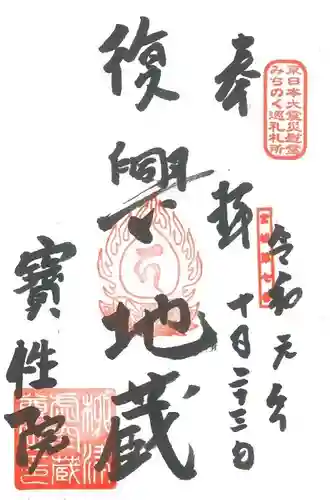 奉拝
東日本大震災慰霊
みちのく巡礼札所
令和元年
十月二十三日
復興地蔵
寳性院